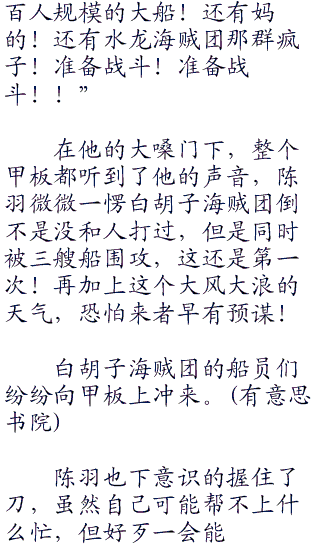 百人规模的大船！还有妈
的！还有水龙海贼团那群疯
子！准备战斗！准备战
斗！！”
在他的大嗓门下，整个
甲板都听到了他的声音，陈
羽微微一愣白胡子海贼团倒
不是没和人打过，但是同时
被三艘船围攻，这还是第一
次！再加上这个大风大浪的
天气，恐怕来者早有预谋！
白胡子海贼团的船员们
纷纷向甲板上冲来。(有意思
书院)
陈羽也下意识的握住了
刀，虽然自己可能帮不上什
么忙，但好歹一会能